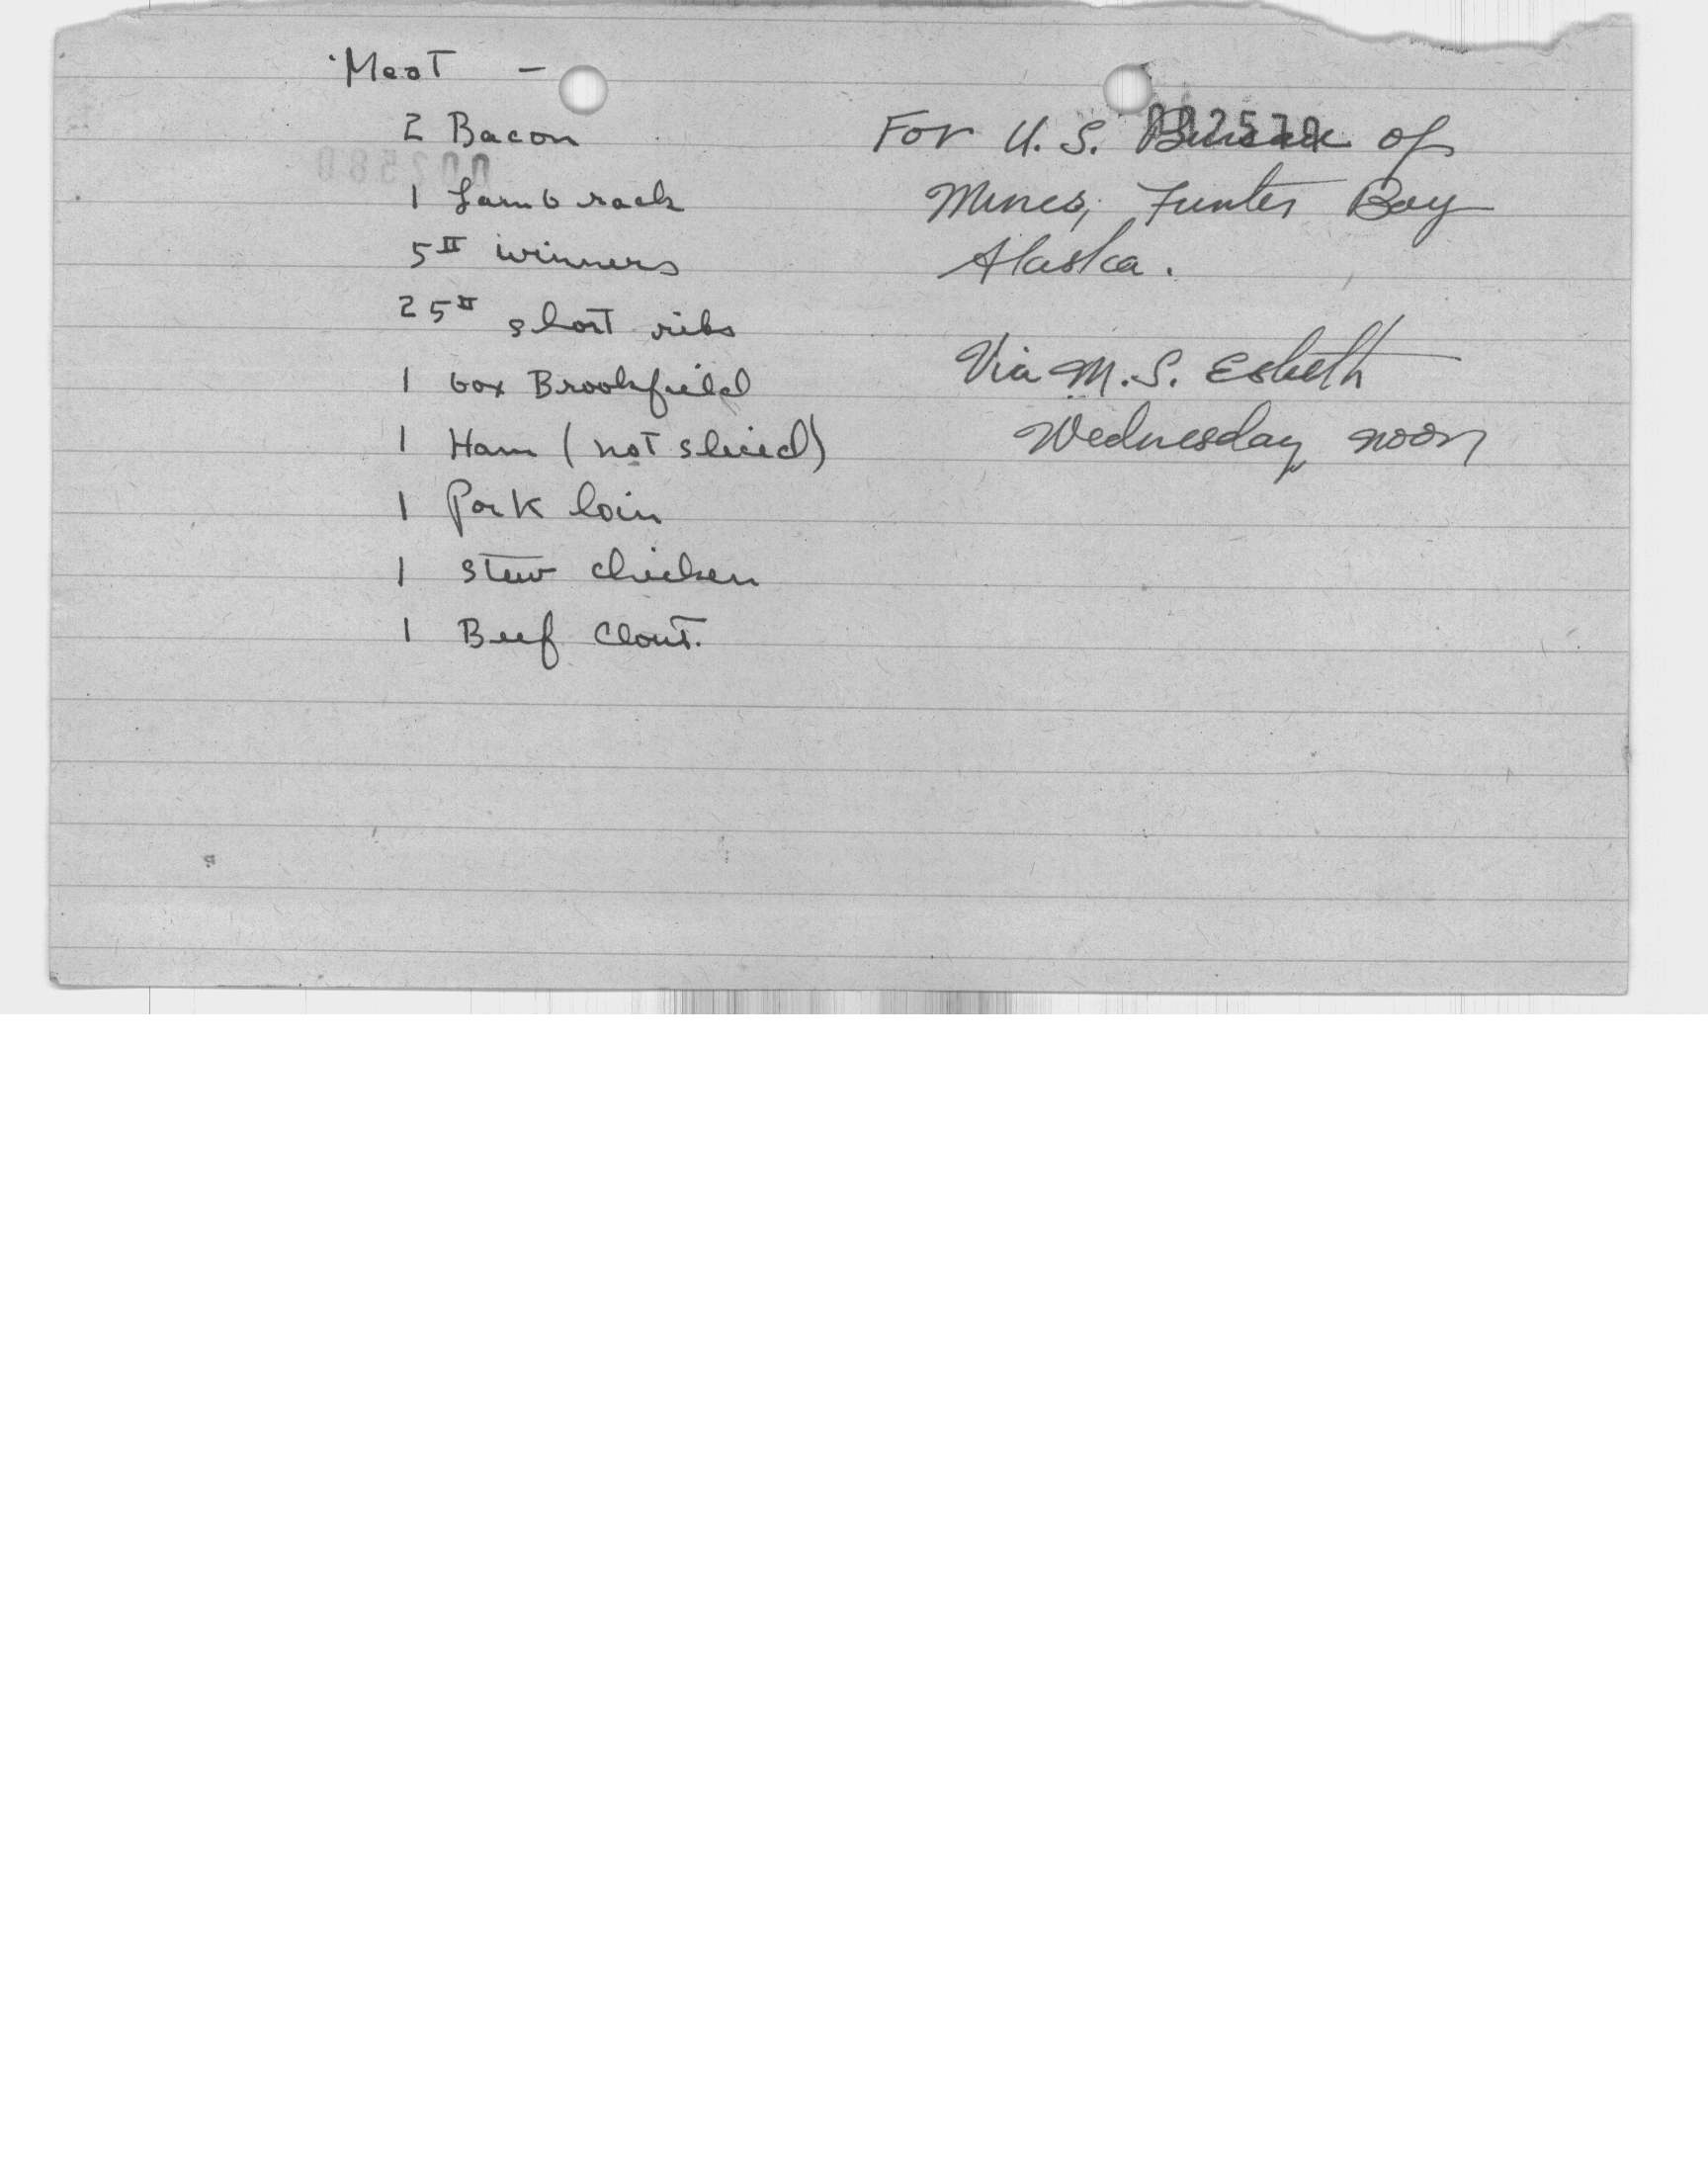 Meat -
2 Bacon
1 Lamb rack
5# winners
25# short ribs
1 box Brookfield
1 Ham (not sliced)
1 Pork loin
1 stew chicken
1 Beef Clout.
002579
For U.S. Bureau of
Mines, Funter Bay
Alaska.
Via M.S. Esbeth
Wednesday noon
002580